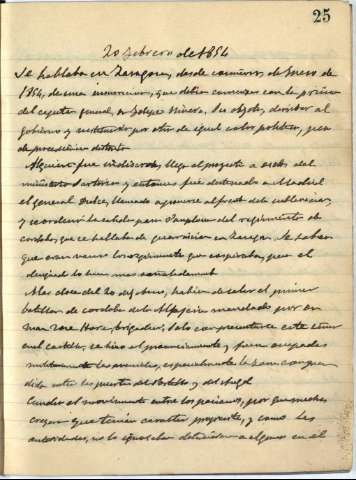 25
20 Febrero de 1854
Se hablaba en Zaragoza, desde comienzos de Enero de
1854, de una que debía comenzar con la prisión
del capitan general, Felipe Rivero. Su objeto, derribar al
gobierno y sustituirlo por otro de igual color político, pero
de procedencia distinta
Alguien fue indiscreto, llegó el proyecto a oidos del
ministerio Sartorius y entonces fué desterrado a Madrid
el general Dulce, llamado a ponerse al frente de la sublevacion,
y se ordenó la salida para Pamplona del regimiento de
Cordoba, que se hallaba de guarnicion en Zaragoza. Se sabia
que eran varios los regimientos que conspiraban, pero el
designado lo era mas
A las doce del 20 de febrero, habia de salir el primer
batallon de Cordoba de la Aljaferia mandado por
Juan José Hore, brigadier. Solo con presentarse este
en el Castillo, se hizo el pronunciamiento y fueron ocupadas
militarmente las avenidas, especialmente la zona compren
dida entre las puertas del Portillo y del Angel
Cundió el movimiento entre los paisanos, por que muchos
creyeron que tenia caracter progresista, y como las
autoridades, no lo ignoraban detuvieron a algunos en el